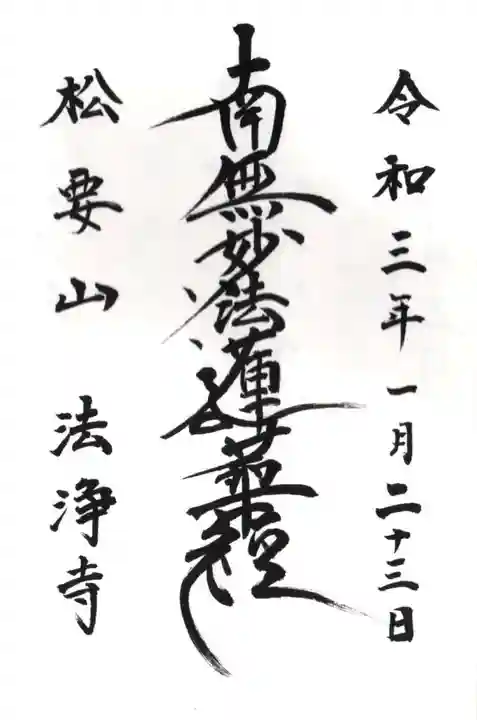 令和三年一月二十三日
南無妙法蓮華経
松要山 法浄寺